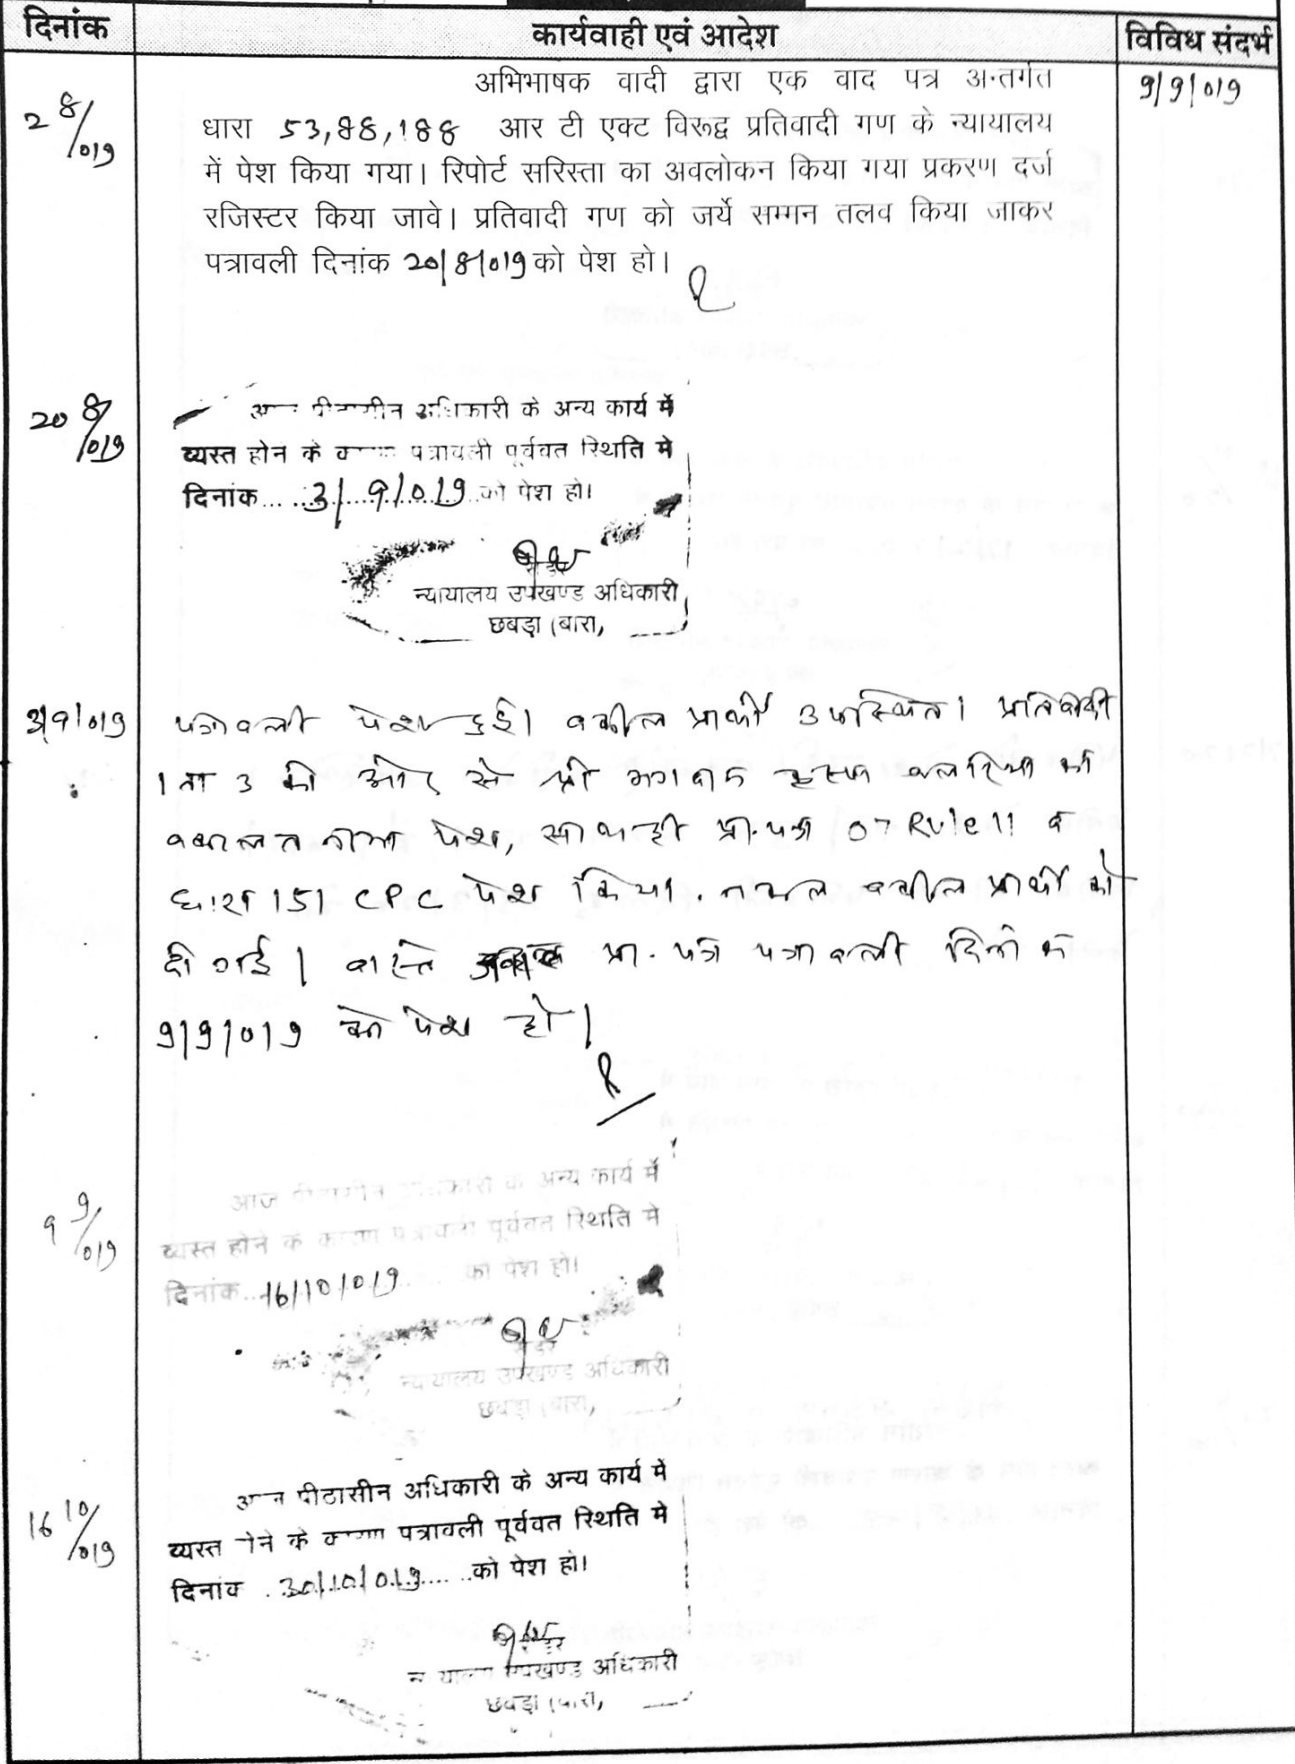 दिनांक
कार्यवाही एवं आदेश
विविध संदर्भ
2 8/019
अभिभाषक वादी द्वारा एक वाद पत्र अन्तर्गत
9/9/019
धारा 53,88,188 आर टी एक्ट विरूद्व प्रतिवादी गण के न्यायालय
में पेश किया गया। रिपोर्ट सरिस्ता का अवलोकन किया गया प्रकरण दर्ज
रजिस्टर किया जावे। प्रतिवादी गण को जर्ये सम्मन तलव किया जाकर
पत्रावली दिनांक 20/8/019 को पेश हो।
20 8/019
पीठासीन अधिकारी के अन्य कार्य में
व्यस्त होने के पत्रावली पूर्ववत स्थिति मे
दिनांक.... 3/9/019 को पेश हो।
रीडर
न्यायालय उपखण्ड अधिकारी
छबड़ा (बारा,
3/9/019
पत्रावली पेश हुई। वकील प्रार्थी उपस्थित। प्रतिवादी
1 ता 3 की ओर से श्री का
वकालतनामा पेश, साथ ही प्रा.पत्र 07 Rule 11 व
धारा 151 CPC पेश किया. नकल वकील प्रार्थी को
दी गई। वास्ते प्रा. पत्र पत्रावली दिनांक
9/9/019 को पेश हो।
9 9/019
आज पीठासीन अधिकारी के अन्य कार्य में
व्यस्त होने के कारण पत्रावली पूर्ववत स्थिति मे
दिनांक.. 16/10/019 को पेश हो।
रीडर
न्यायालय उपखण्ड अधिकारी
छबड़ा (बारा,
16 10/019
पीठासीन अधिकारी के अन्य कार्य में
व्यस्त के पत्रावली पूर्ववत स्थिति मे
दिनांक . 30/10/019 ..को पेश हो।
रीडर
उपखण्ड अधिकारी
छबड़ा (बारा,